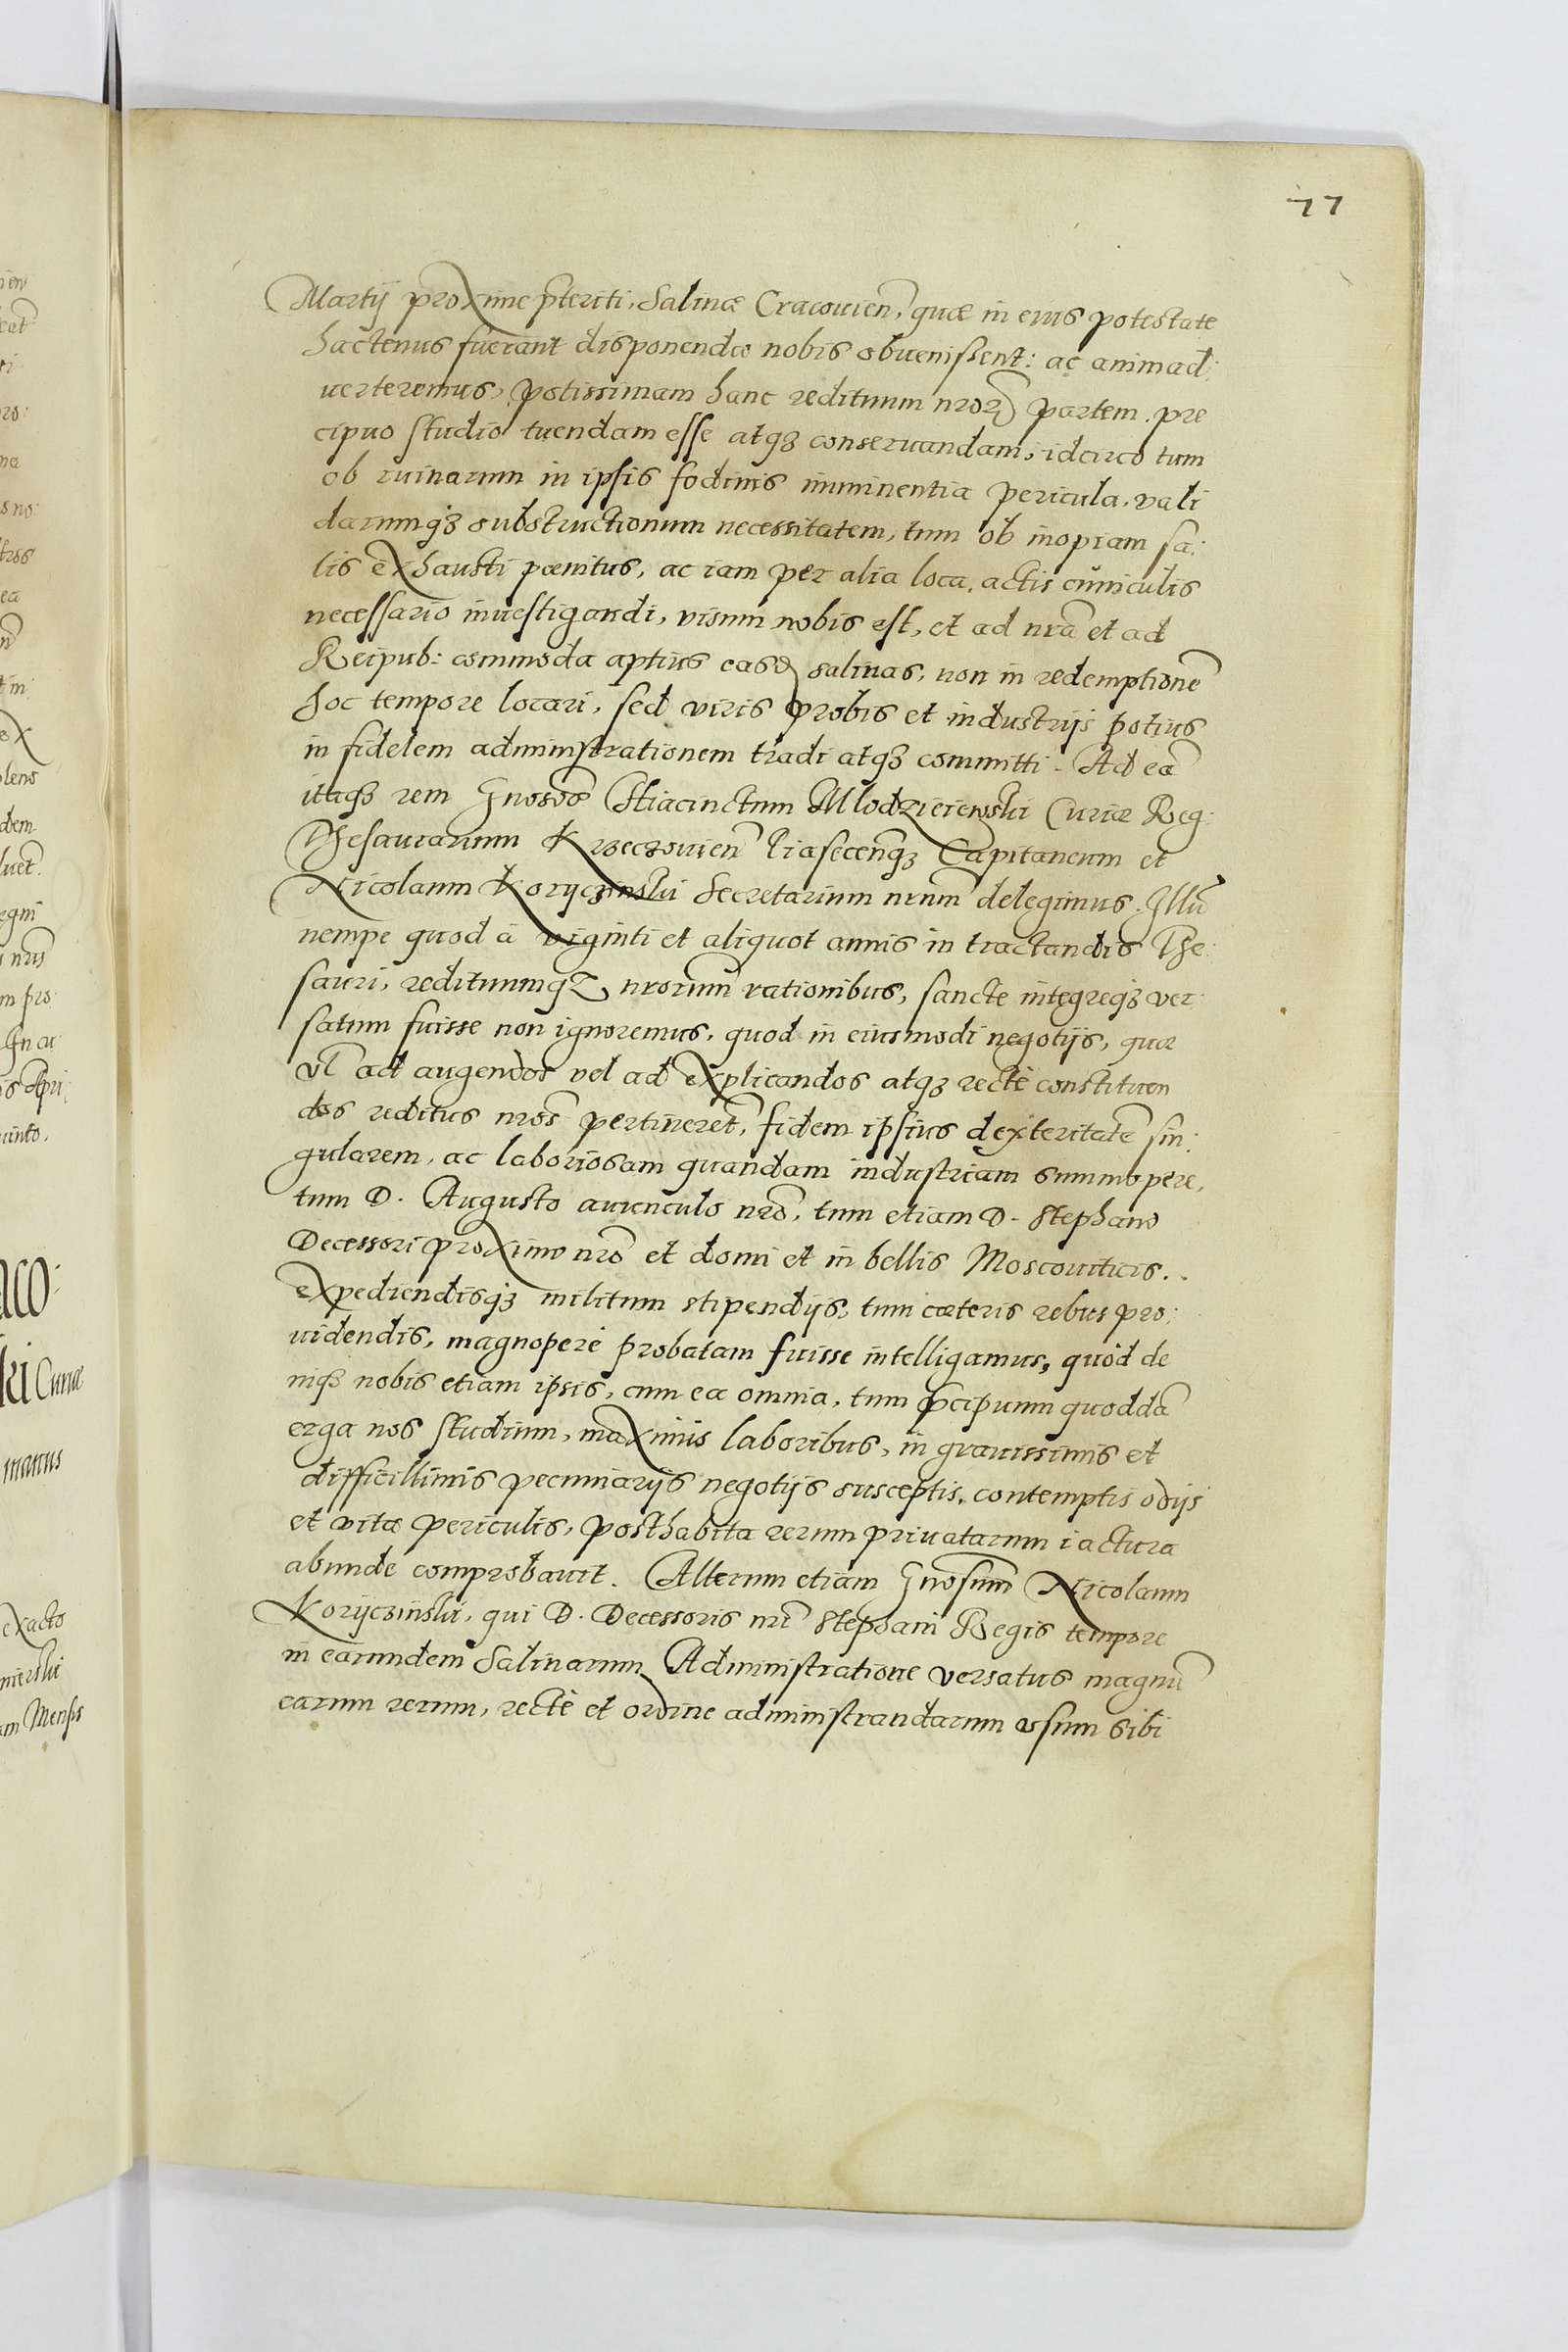 77
Martij proxime p̃teriti, Salinæ Cracouien̄, quæ in eius potestate
hactenus fuerant disponendæ nobis obuenissent: ac animad:
uerteremus, potissimam hanc redituum nror̃ partem, pre
cipuo studio tuendam esse atq̃ conseruandam, idcirco tum
ob ruinarum in ipsis fodinis imminentia pericula, vali
darumq̃ substructionum necessitatem, tum ob inopiam sa:
lis exhausti pænitus, ac iam per alia loca, actis cuniculis
necessario inuestigandi, visum nobis est, et ad nrã et ad
Reipub: commoda aptius easd salinas, non in redemptionẽ
hoc tempore locari, sed viris probis et industrijs potius
in fidelem administrationem tradi atq̃ committi. Ad eã
itaq̃ rem Gnosos Hiacinctum Mlodzieiewski Curiæ Reg:
Thesaurarium Krzeczouien̄ Piasecenq̃ Capitaneum et
Nicolaum Koryczinski Secretarium nrum̃ delegimus. Illũ
nempe quod à viginti et aliquot annis in tractandis The:
sauri, redituumq̃ nrorum̃ rationibus, sancte integreq̃ ver:
satum fuisse non ignoremus, quod in eiusmodi negotijs, quæ
vl̃ ad augendos vel ad explicandos atq̃ rectè constituen
dos reditus nros̃ pertineret̃, fidem ipsius dexteritatẽ sin:
gularem, ac laboriosam quandam industriam summopere,
tum D. Augusto auunculo nrõ, tum etiam D. Stephano
Decessori proximo nrõ et domi et in bellis Moscouiticis.
expediendisq̃ militum stipendijs, tum cæteris rebus pro:
uidendis, magnoperè probatam fuisse intelligamus, quòd de
niq̃ nobis etiam ipsis, cum ea omnia, tum p̃cipuum quoddã
erga nos studium, maximis laboribus, in grauissimis et
difficillimis pecuniarijs negotijs susceptis, contemptis odijs
et vitæ periculis, posthabita rerum priuatarum iactura
abunde comprobauit. Alterum etiam Gnosum̃ Nicolaum
Koryczinski, qui D. Decessoris nri̇̃ Stephani Regis tempore
in earundem Salinarum Administratione versatus magnũ
earum rerum, rectè et ordine administrandarum vsum sibi